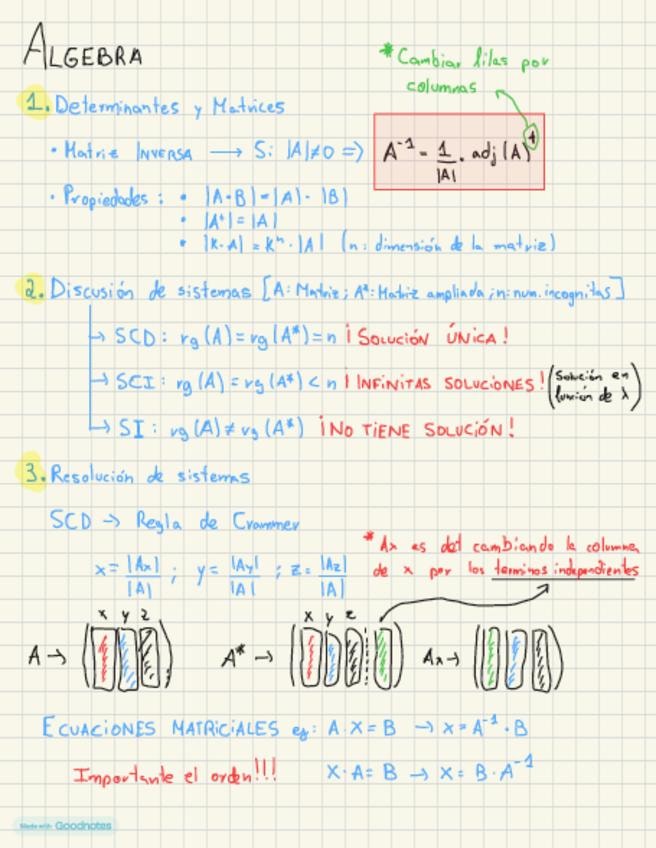 ALGEBRA
*Cambiar filas por
columnas
1. Determinantes y Matrices
• Matriz INVERSA → Si |A|≠0 => A⁻¹ = 1/|A| · adj(A)ᵗ
• Propiedades: • |A·B| = |A|·|B|
• |Aᵗ| = |A|
• |K·A| = Kⁿ·|A| (n: dimensión de la matriz)
2. Discusión de sistemas [A: Matriz; A*: Matriz ampliada; n: num. incognitas]
→ SCD: rg(A) = rg(A*) = n ¡SOLUCIÓN ÚNICA!
→ SCI: rg(A) = rg(A*) < n ¡INFINITAS SOLUCIONES! (Solución en
función de λ)
→ SI: rg(A) ≠ rg(A*) ¡NO TIENE SOLUCIÓN!
3. Resolución de sistemas
SCD → Regla de Crammer
*Ax es det cambiando la columna
de x por los terminos independientes
x = |Ax|/|A| ; y = |Ay|/|A| ; z = |Az|/|A|
x y z x y z
A → A* → Ax →
ECUACIONES MATRICIALES eg: A·X = B → x = A⁻¹·B
Importante el orden!!! X·A = B → X = B·A⁻¹
Made with Goodnotes